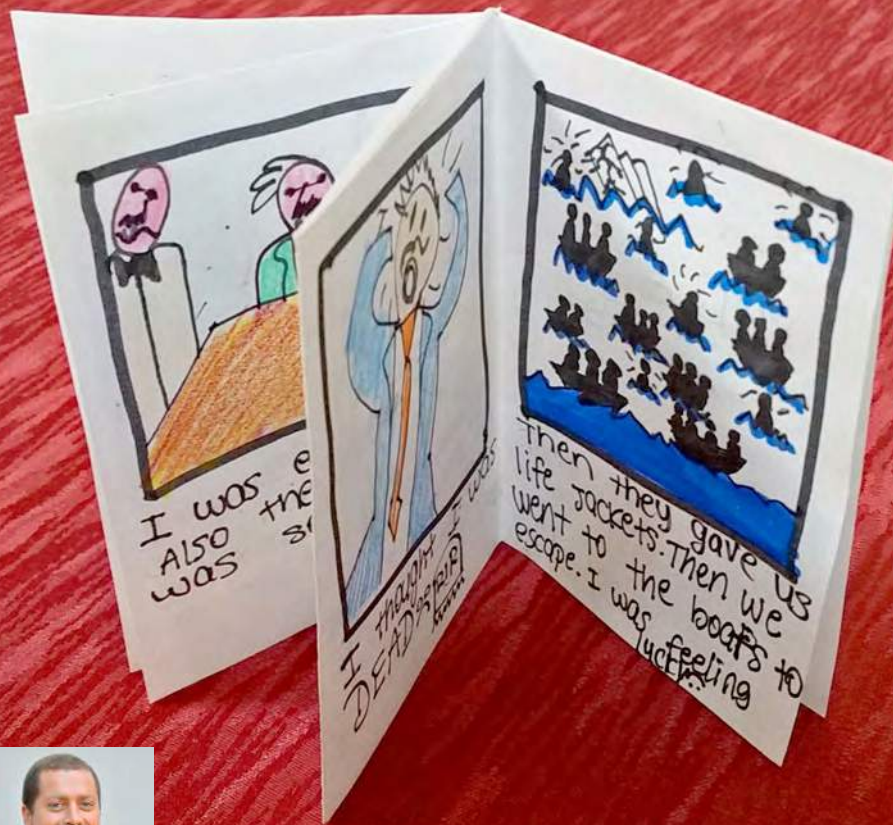 I was
Also the
was
I thought I was
DEAD
Then they gave us
life jackets. Then we
went to the boats to
escape. I was feeling